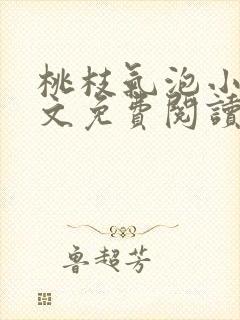 桃枝氣泡小
文免費閱讀
魯超芳